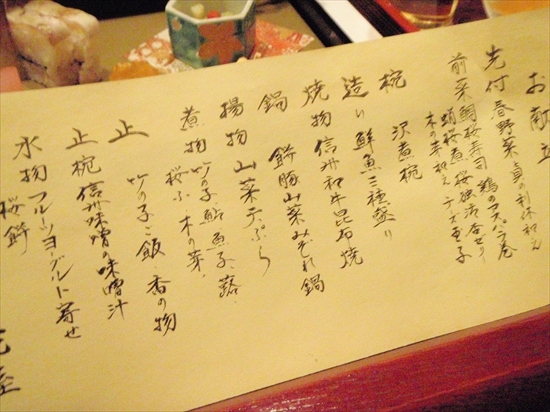 お献立
先付 春野菜 真の利休和え
前菜 鯛桜寿司 鶏のアスパラ巻
蛸桜煮 桜独活
木の芽和え チーズ玉子
椀 沢煮椀
造り 鮮魚三種盛り
焼物 信州和牛昆石焼
鍋 餅豚山菜みぞれ鍋
揚物 山菜天ぷら
煮物 竹の子 鯛魚子 蕗
桜ふ 木の芽
止 竹の子ご飯 香の物
止椀 信州味噌の味噌汁
水物 フルーツヨーグルト寄せ
桜餅